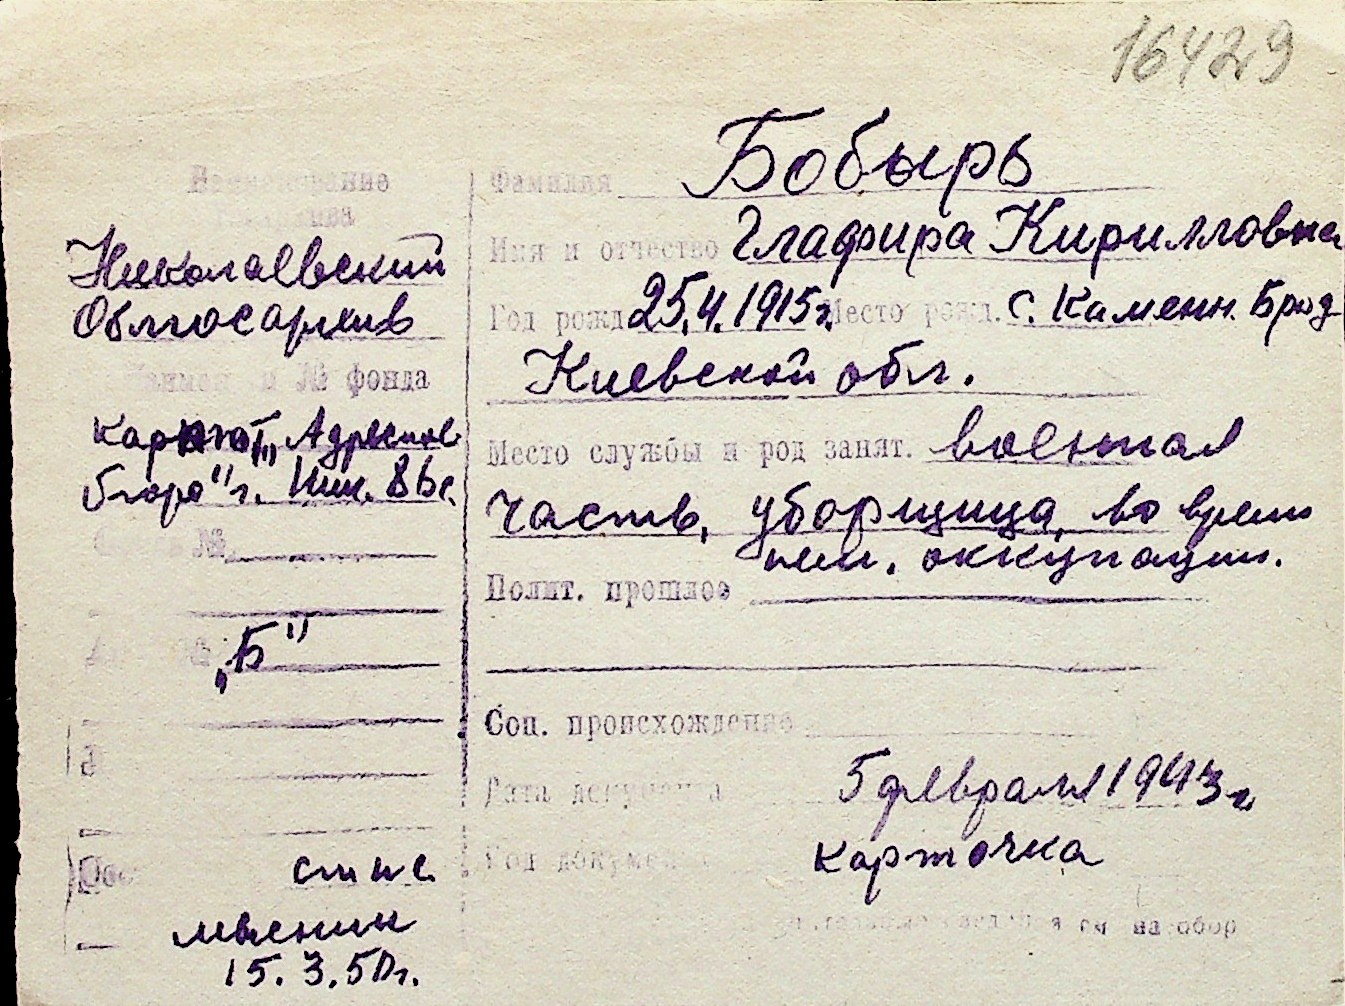 16429
Наименование
Госархива
Николаевский
Облгосархив
Наимен. и № фонда
Картот. „Адресное
бюро" г. Ник.
Опись №
„Б"
спис.
явлении
15.3.50г.
Фамилия Бобырь
Имя и отчество Глафира Кирилловна
Год рожд. 25.4.1915г. Место рожд. с. Каменн. Брод
Киевской обл.
Место службы и род занят. военная
часть, уборщица, во время
нем. оккупации.
Полит. прошлое
Соц. происхождение
Дата документа 5 февраля 1943 г.
Род докумен карточка
см на обор